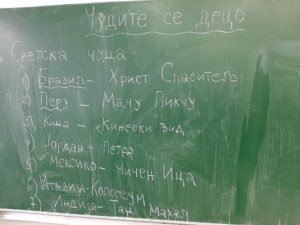 Чудите се децо
Светска чуда
1) Бразил - Христ Спаситељ
2) Перу - Мачу Пикчу
3) Кина - Кинески зид
4) Јордан - Петра
5) Мексико - Чичен Ица
6) Италија - Колосеум
7) Индија - Таџ Махал